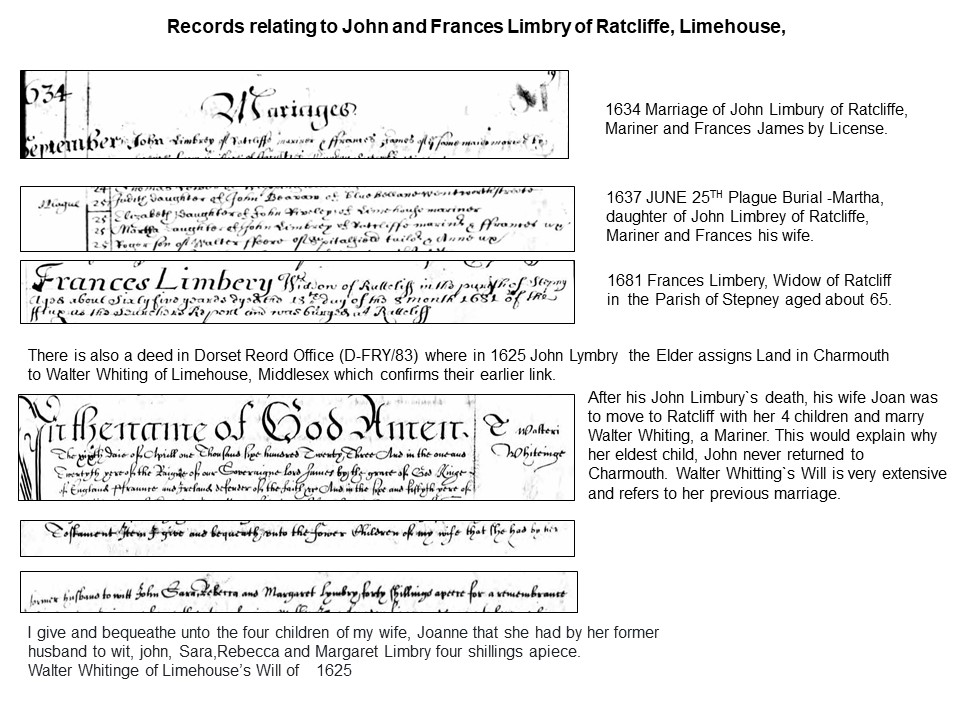 Records relating to John and Frances Limbry of Ratcliffe, Limehouse,
634
Mariages
September John Limbrey of Ratcliff mariner & ffrances James of ye same maid married by
1634 Marriage of John Limbury of Ratcliffe,
Mariner and Frances James by License.
24
Plague 25 Judith daughter of John
25 Elizabeth daughter of John of Limehouse mariner
25 Martha daughter of John Limbrey of Ratcliffe marin & ffrances ux
25 Roger son of Walter & Anne ux
1637 JUNE 25TH Plague Burial -Martha,
daughter of John Limbrey of Ratcliffe,
Mariner and Frances his wife.
Frances Limbery Widow of Ratcliff in the parish of Stepny
Aged about Sixty five yeares dyed the day of the 8 month 1681 of the
and was buryed at Ratcliff
1681 Frances Limbery, Widow of Ratcliff
in the Parish of Stepney aged about 65.
There is also a deed in Dorset Reord Office (D-FRY/83) where in 1625 John Lymbry the Elder assigns Land in Charmouth
to Walter Whiting of Limehouse, Middlesex which confirms their earlier link.
In the name of God Amen. T Walteri
The daie of Aprill one Thousand sixe hundred Twenty Three And in the one and Whiteinge
Twentyth yere of the Raigne of our Soveraigne lord James by the grace of God Kinge
of England ffraunce and Ireland defender of the faith &c And in the sixe and fiftyth yere of
After his John Limbury`s death, his wife Joan was
to move to Ratcliff with her 4 children and marry
Walter Whiting, a Mariner. This would explain why
her eldest child, John never returned to
Charmouth. Walter Whitting`s Will is very extensive
and refers to her previous marriage.
Testament Item I give and bequeath unto the fower Children of my wife that she had by her
former husband to witt John Sara Rebecca and Margaret Lymbry forty shillings apeece for a remembrance
I give and bequeathe unto the four children of my wife, Joanne that she had by her former
husband to wit, john, Sara,Rebecca and Margaret Limbry four shillings apiece.
Walter Whitinge of Limehouse’s Will of 1625